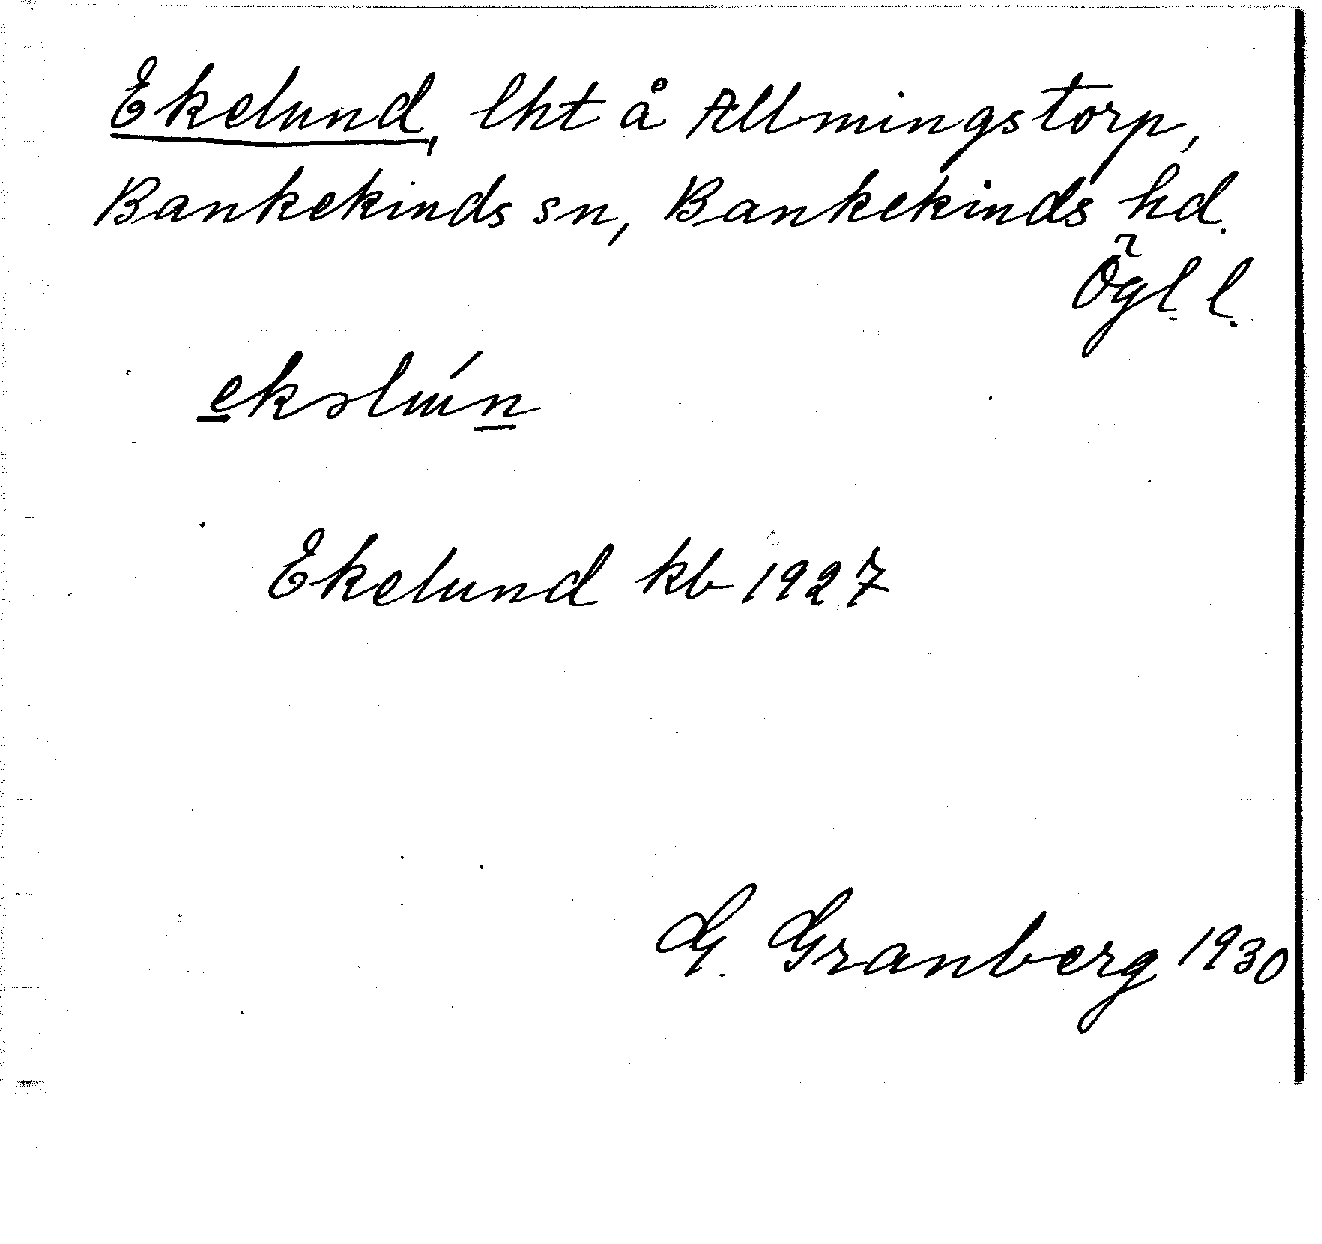 Ekelund, lht å Allmingstorp,
Bankekinds sn, Bankekinds hd.
Ögl. l.
ekəlún
Ekelund kb 1927
G. Granberg 1930